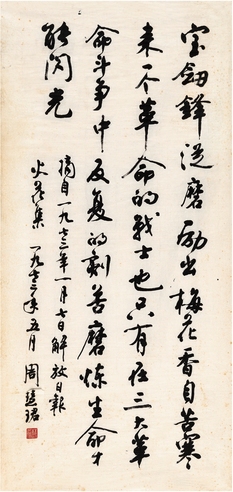 宝劍鋒從磨励出梅花香自苦寒
来一个革命的战士也只有在三大革
命斗争中反复的刻苦磨炼生命才
能闪光
摘自一九七三年一月七日解放日報
火花集 一九七三年五月 周慧珺